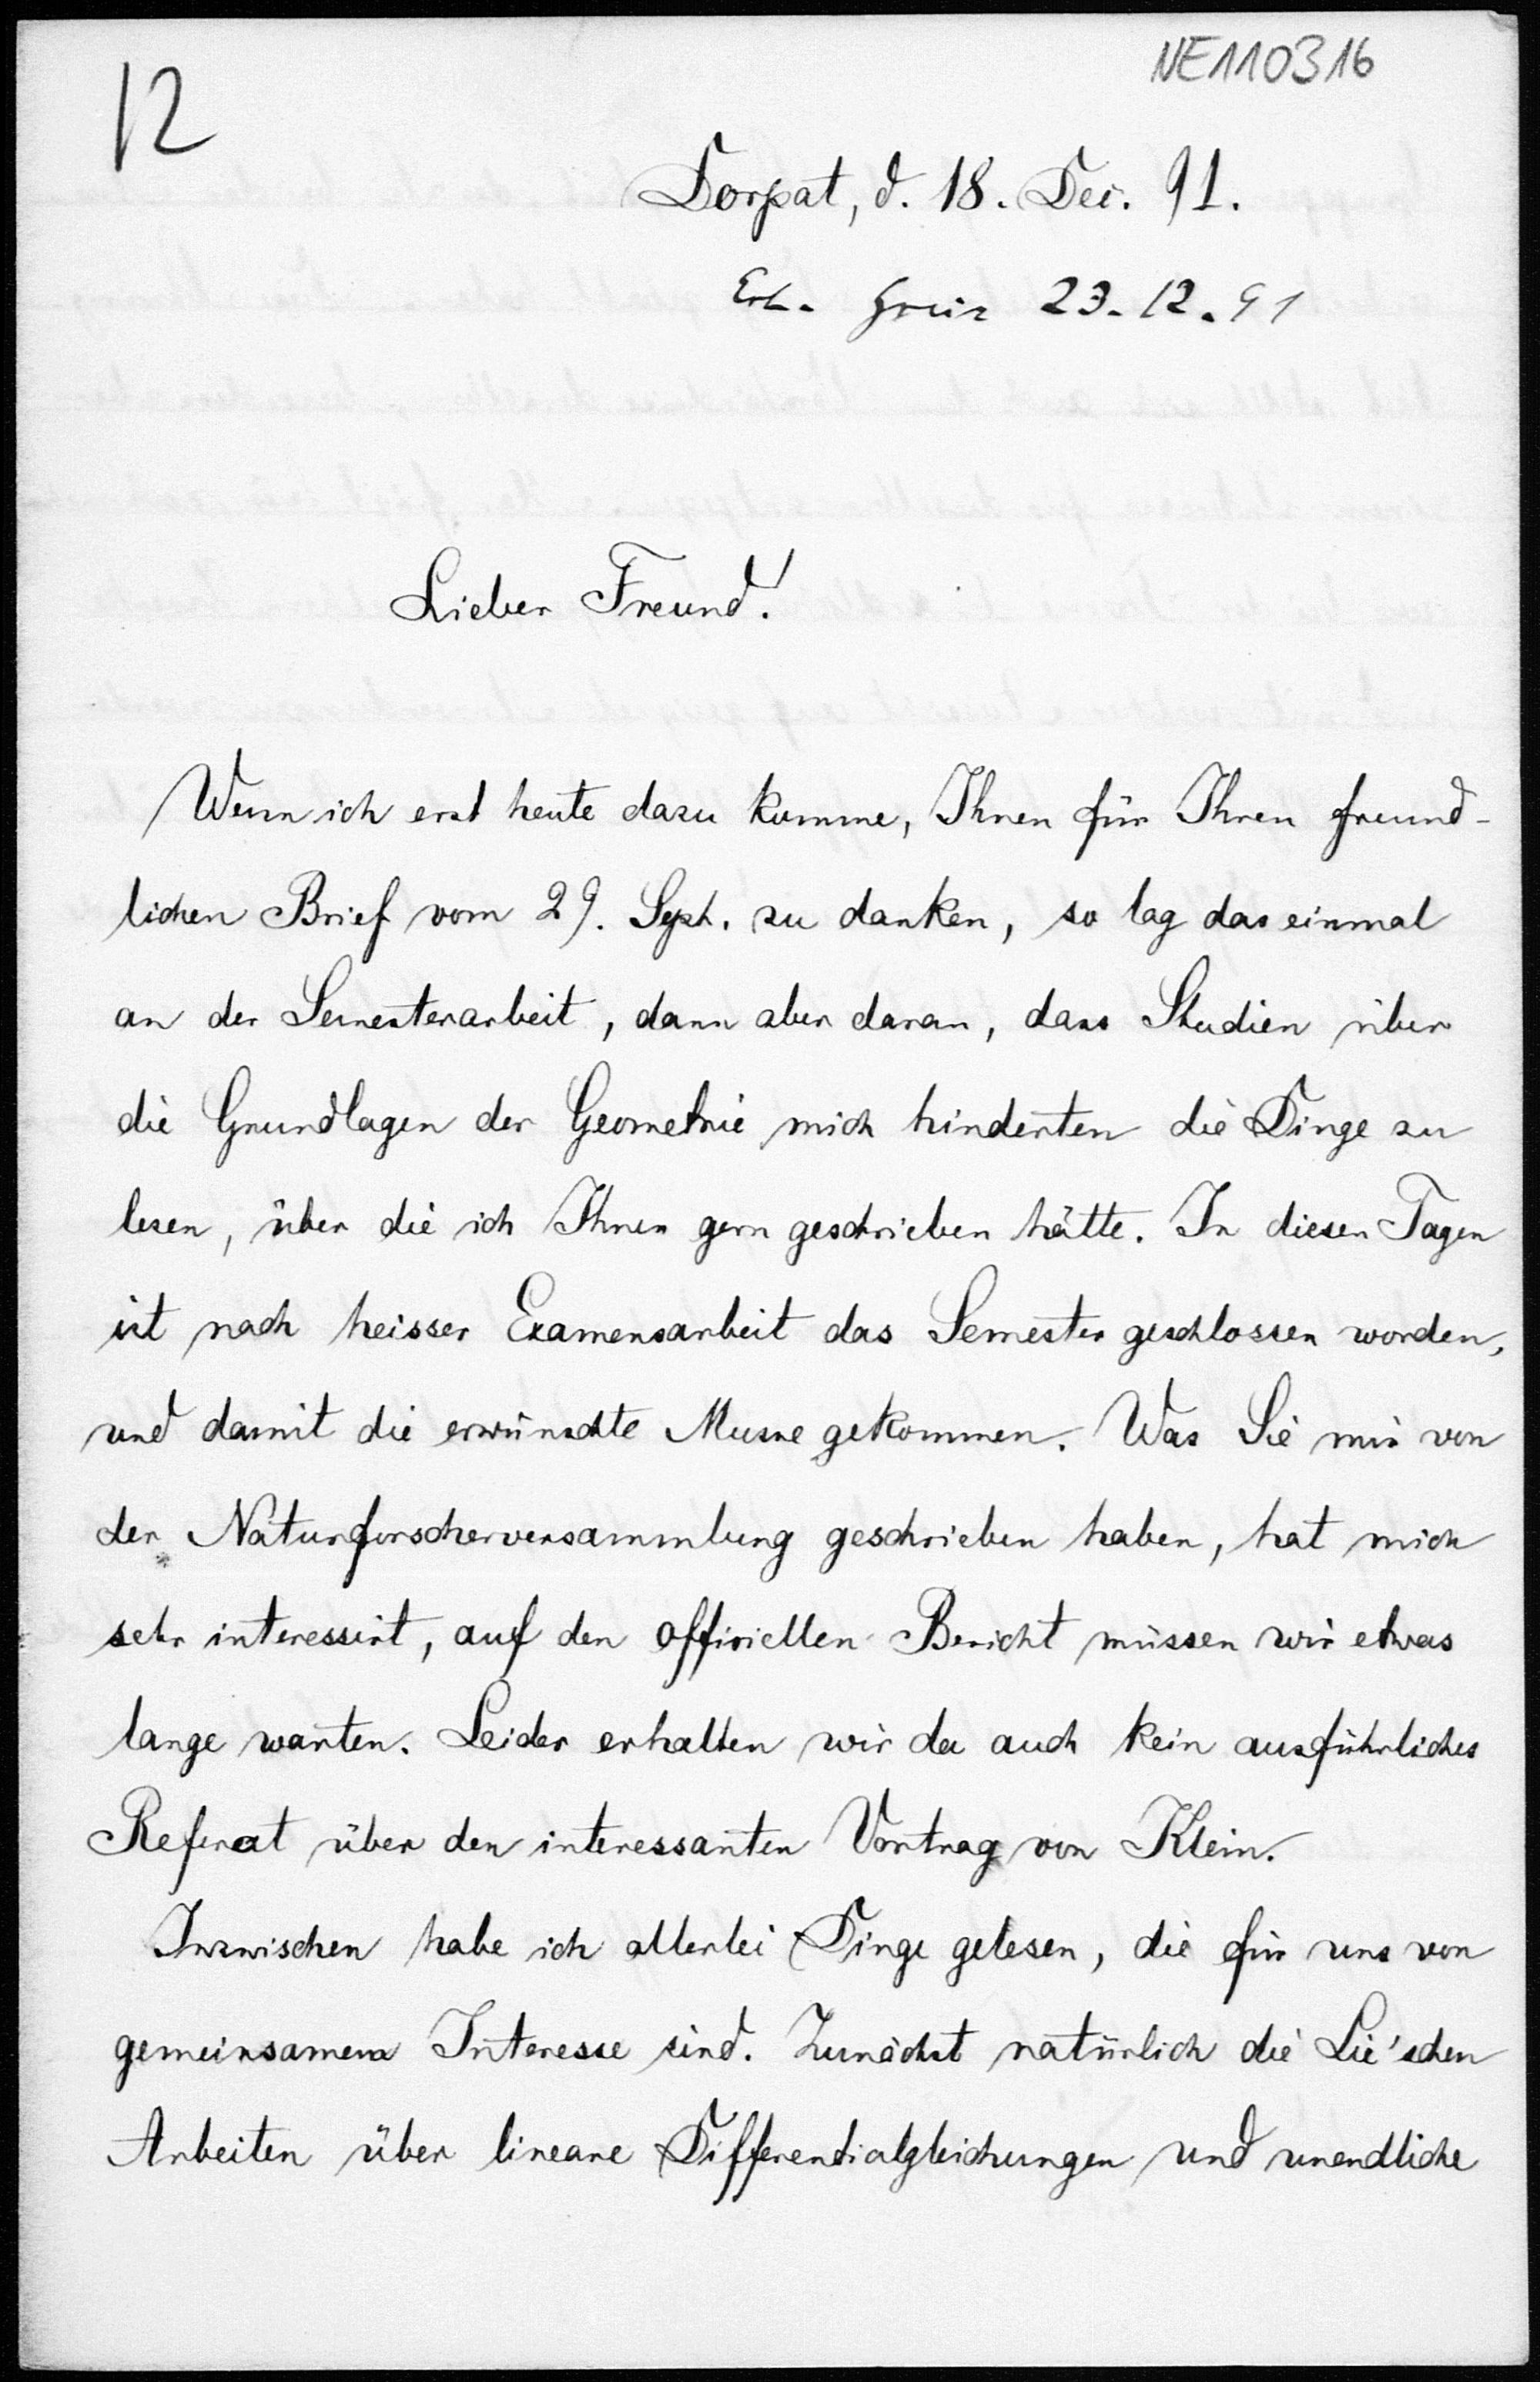 12
NE110316
Dorpat, d. 18. Dec. 91.
Erh. Greiz 23-12.91
Lieber Freund!
Wenn ich erst heute dazu komme, Ihnen für Ihren freund-
lichen Brief vom 29. Sept. zu danken, so lag das einmal
an der Semesterarbeit, dann aber daran, dass Studien über
die Grundlagen der Geometrie mich hinderten die Dinge zu
lesen, über die ich Ihnen gern geschrieben hätte. In diesen Tagen
ist nach heisser Examensarbeit das Semester geschlossen worden,
und damit die erwünschte Musse gekommen. Was Sie mir von
der Naturforscherversammlung geschrieben haben, hat mich
sehr interessirt, auf den officiellen Bericht müssen wir etwas
lange warten. Leider erhalten wir da auch kein ausführliches
Referat über den interessanten Vortrag von Klein.
Inzwischen habe ich allerlei Dinge gelesen, die für uns von
gemeinsamem Interesse sind. Zunächst natürlich die Lie'schen
Arbeiten über lineare Differentialgleichungen und unendliche